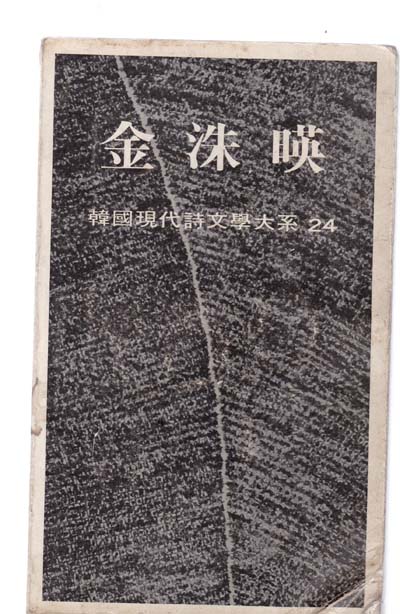 金洙暎
韓國現代詩文學大系 24